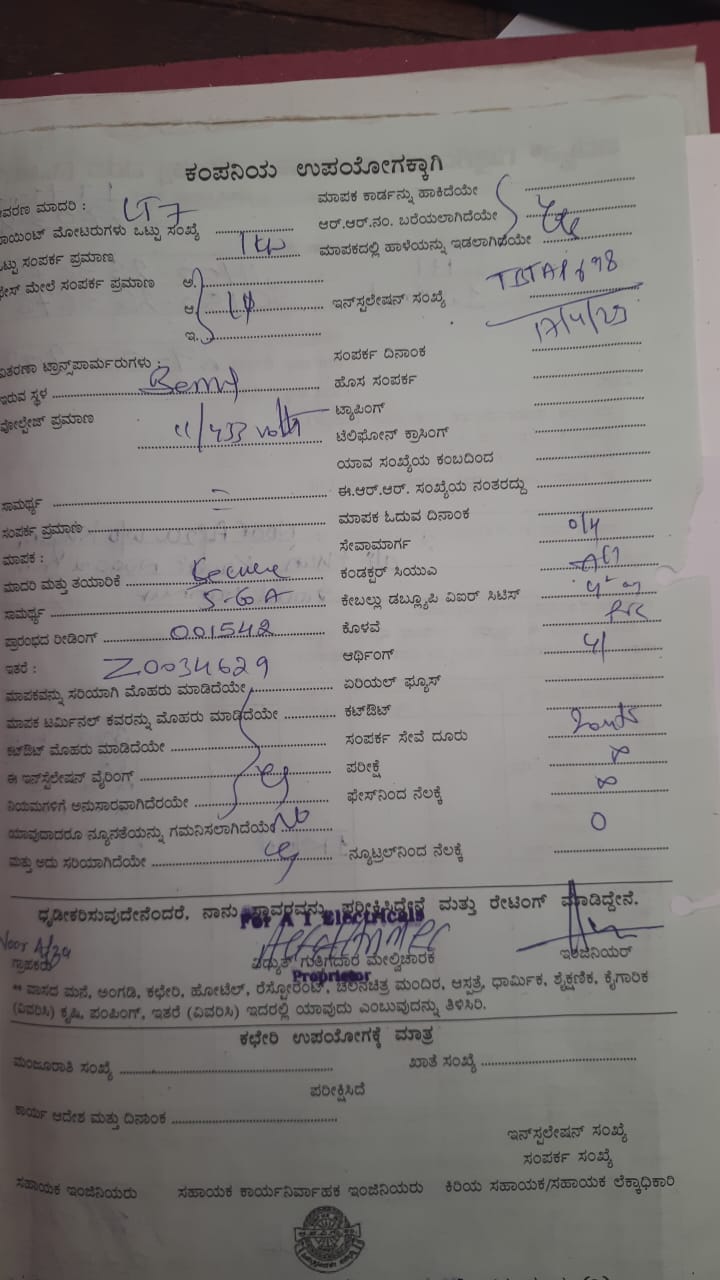 ಕಂಪನಿಯ ಉಪಯೋಗಕ್ಕಾಗಿ
ಮಾಪಕ ಕಾರ್ಡನ್ನು ಹಾಕಿದೆಯೇ
ವರಣ ಮಾದರಿ : LT7
ಆರ್.ಆರ್.ನಂ. ಬರೆಯಲಾಗಿದೆಯೇ
ಾಯಿಂಟ್ ಮೋಟರುಗಳು ಒಟ್ಟು ಸಂಖ್ಯೆ
ಮಾಪಕದಲ್ಲಿ ಹಾಳೆಯನ್ನು ಇಡಲಾಗಿದೆಯೇ
ಟ್ಟು ಸಂಪರ್ಕ ಪ್ರಮಾಣ 1KW
ಫೇಸ್ ಮೇಲೆ ಸಂಪರ್ಕ ಪ್ರಮಾಣ ಅ.
ಆ.
ಇನ್‌ಸ್ಪಲೇಷನ್ ಸಂಖ್ಯೆ
ಇ.
17/4/23
ವಿತರಣಾ ಟ್ರಾನ್ಸ್‌ಪಾರ್ಮರುಗಳು :
ಸಂಪರ್ಕ ದಿನಾಂಕ
ಇರುವ ಸ್ಥಳ
ಹೊಸ ಸಂಪರ್ಕ
ವೋಲ್ಟೇಜ್ ಪ್ರಮಾಣ 11/433 volts
ಟ್ಯಾಪಿಂಗ್
ಟೆಲಿಫೋನ್ ಕ್ರಾಸಿಂಗ್
ಯಾವ ಸಂಖ್ಯೆಯ ಕಂಬದಿಂದ
ಸಾಮರ್ಥ್ಯ
ಈ.ಆರ್.ಆರ್. ಸಂಖ್ಯೆಯ ನಂತರದ್ದು
ಸಂಪರ್ಕ ಪ್ರಮಾಣ
ಮಾಪಕ ಓದುವ ದಿನಾಂಕ
ಮಾಪಕ :
ಸೇವಾಮಾರ್ಗ O/H
ಮಾದರಿ ಮತ್ತು ತಯಾರಿಕೆ Secure
ಕಂಡಕ್ಟರ್ ಸಿಯುಎ
ಸಾಮರ್ಥ್ಯ 5-60 A
ಕೇಬಲ್ಲು ಡಬ್ಲ್ಯೂಪಿ ವಿಐರ್ ಸಿಟಿಸ್
ಪ್ರಾರಂಭದ ರೀಡಿಂಗ್ 001542
ಕೊಳವೆ PVC
ಇತರೆ : Z0034629
ಆರ್ಥಿಂಗ್
ಮಾಪಕವನ್ನು ಸರಿಯಾಗಿ ಮೊಹರು ಮಾಡಿದೆಯೇ
ಏರಿಯಲ್ ಫ್ಯೂಸ್
ಮಾಪಕ ಟರ್ಮಿನಲ್ ಕವರನ್ನು ಮೊಹರು ಮಾಡಿದೆಯೇ
ಕಟ್‌ಔಟ್
ಕಟ್‌ಔಟ್ ಮೊಹರು ಮಾಡಿದೆಯೇ
ಸಂಪರ್ಕ ಸೇವೆ ದೂರು
ಈ ಇನ್‌ಸ್ಪಲೇಷನ್ ವೈರಿಂಗ್
ಪರೀಕ್ಷೆ ∞
ನಿಯಮಗಳಿಗೆ ಅನುಸಾರವಾಗಿದೆರಯೇ
ಫೇಸ್‌ನಿಂದ ನೆಲಕ್ಕೆ ∞
ಯಾವುದಾದರೂ ನ್ಯೂನತೆಯನ್ನು ಗಮನಿಸಲಾಗಿದೆಯೇ No
ಮತ್ತು ಅದು ಸರಿಯಾಗಿದೆಯೇ
ನ್ಯೂಟ್ರಲ್‌ನಿಂದ ನೆಲಕ್ಕೆ 0
ಧೃಡೀಕರಿಸುವುದೇನೆಂದರೆ, ನಾನು ಸ್ಥಾವರವನ್ನು ಪರೀಕ್ಷಿಸಿದ್ದೇನೆ ಮತ್ತು ರೇಟಿಂಗ್ ಮಾಡಿದ್ದೇನೆ.
For A I Electricals
Noor Afza
ಗ್ರಾಹಕರು ವಿದ್ಯುತ್ ಗುತ್ತಿಗೆದಾರ ಮೇಲ್ವಿಚಾರಕ ಇಂಜಿನಿಯರ್
Proprietor
** ವಾಸದ ಮನೆ, ಅಂಗಡಿ, ಕಛೇರಿ, ಹೋಟೆಲ್, ರೆಸ್ಟೋರೆಂಟ್, ಚಲನಚಿತ್ರ ಮಂದಿರ, ಆಸ್ಪತ್ರೆ, ಧಾರ್ಮಿಕ, ಶೈಕ್ಷಣಿಕ, ಕೈಗಾರಿಕ
(ವಿವರಿಸಿ) ಕೃಷಿ, ಪಂಪಿಂಗ್, ಇತರೆ (ವಿವರಿಸಿ) ಇದರಲ್ಲಿ ಯಾವುದು ಎಂಬುವುದನ್ನು ತಿಳಿಸಿರಿ.
ಕಛೇರಿ ಉಪಯೋಗಕ್ಕೆ ಮಾತ್ರ
ಮಂಜೂರಾತಿ ಸಂಖ್ಯೆ
ಖಾತೆ ಸಂಖ್ಯೆ
ಪರೀಕ್ಷಿಸಿದೆ
ಕಾರ್ಯ ಆದೇಶ ಮತ್ತು ದಿನಾಂಕ
ಇನ್‌ಸ್ಪಲೇಷನ್ ಸಂಖ್ಯೆ
ಸಂಪರ್ಕ ಸಂಖ್ಯೆ
ಸಹಾಯಕ ಇಂಜಿನಿಯರು ಸಹಾಯಕ ಕಾರ್ಯನಿರ್ವಾಹಕ ಇಂಜಿನಿಯರು ಕಿರಿಯ ಸಹಾಯಕ/ಸಹಾಯಕ ಲೆಕ್ಕಾಧಿಕಾರಿ